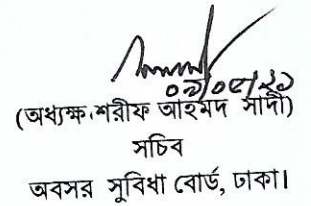 ০৯/০৫/২১
(অধ্যক্ষ শরীফ আহমদ সাদী)
সচিব
অবসর সুবিধা বোর্ড, ঢাকা।